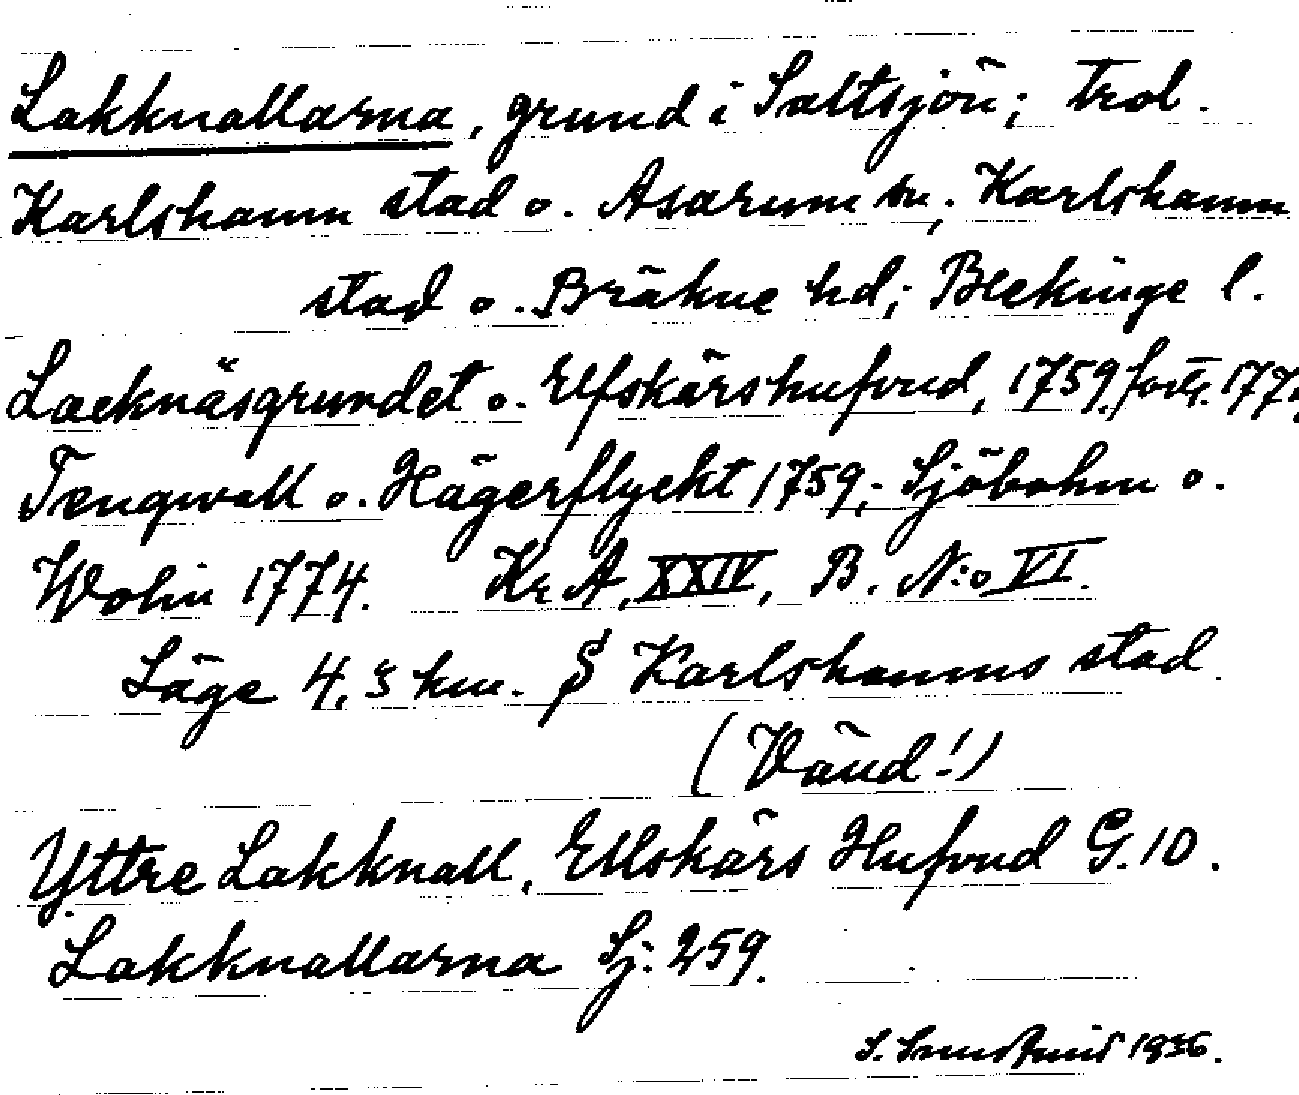 Lakknallarna, grund i Saltsjön; trol.
Karlshamn stad o. Asarum sn, Karlshamn
stad o. Bräkne hd; Blekinge l.
Lacknäsgrundet o. Elfskärshufvud, 1759, forts. 1774,
Tengwall o. Hägerflyckt 1759; Sjöbohm o.
Wohin 1774. Kr A, XXIV, B. N:o VI.
Läge 4,5 km. S Karlshamns stad.
(Vänd!)
Yttre Lakknall, Ellskärs Hufvud G. 10.
Lakknallarna Sj: 259.
S. 1936.